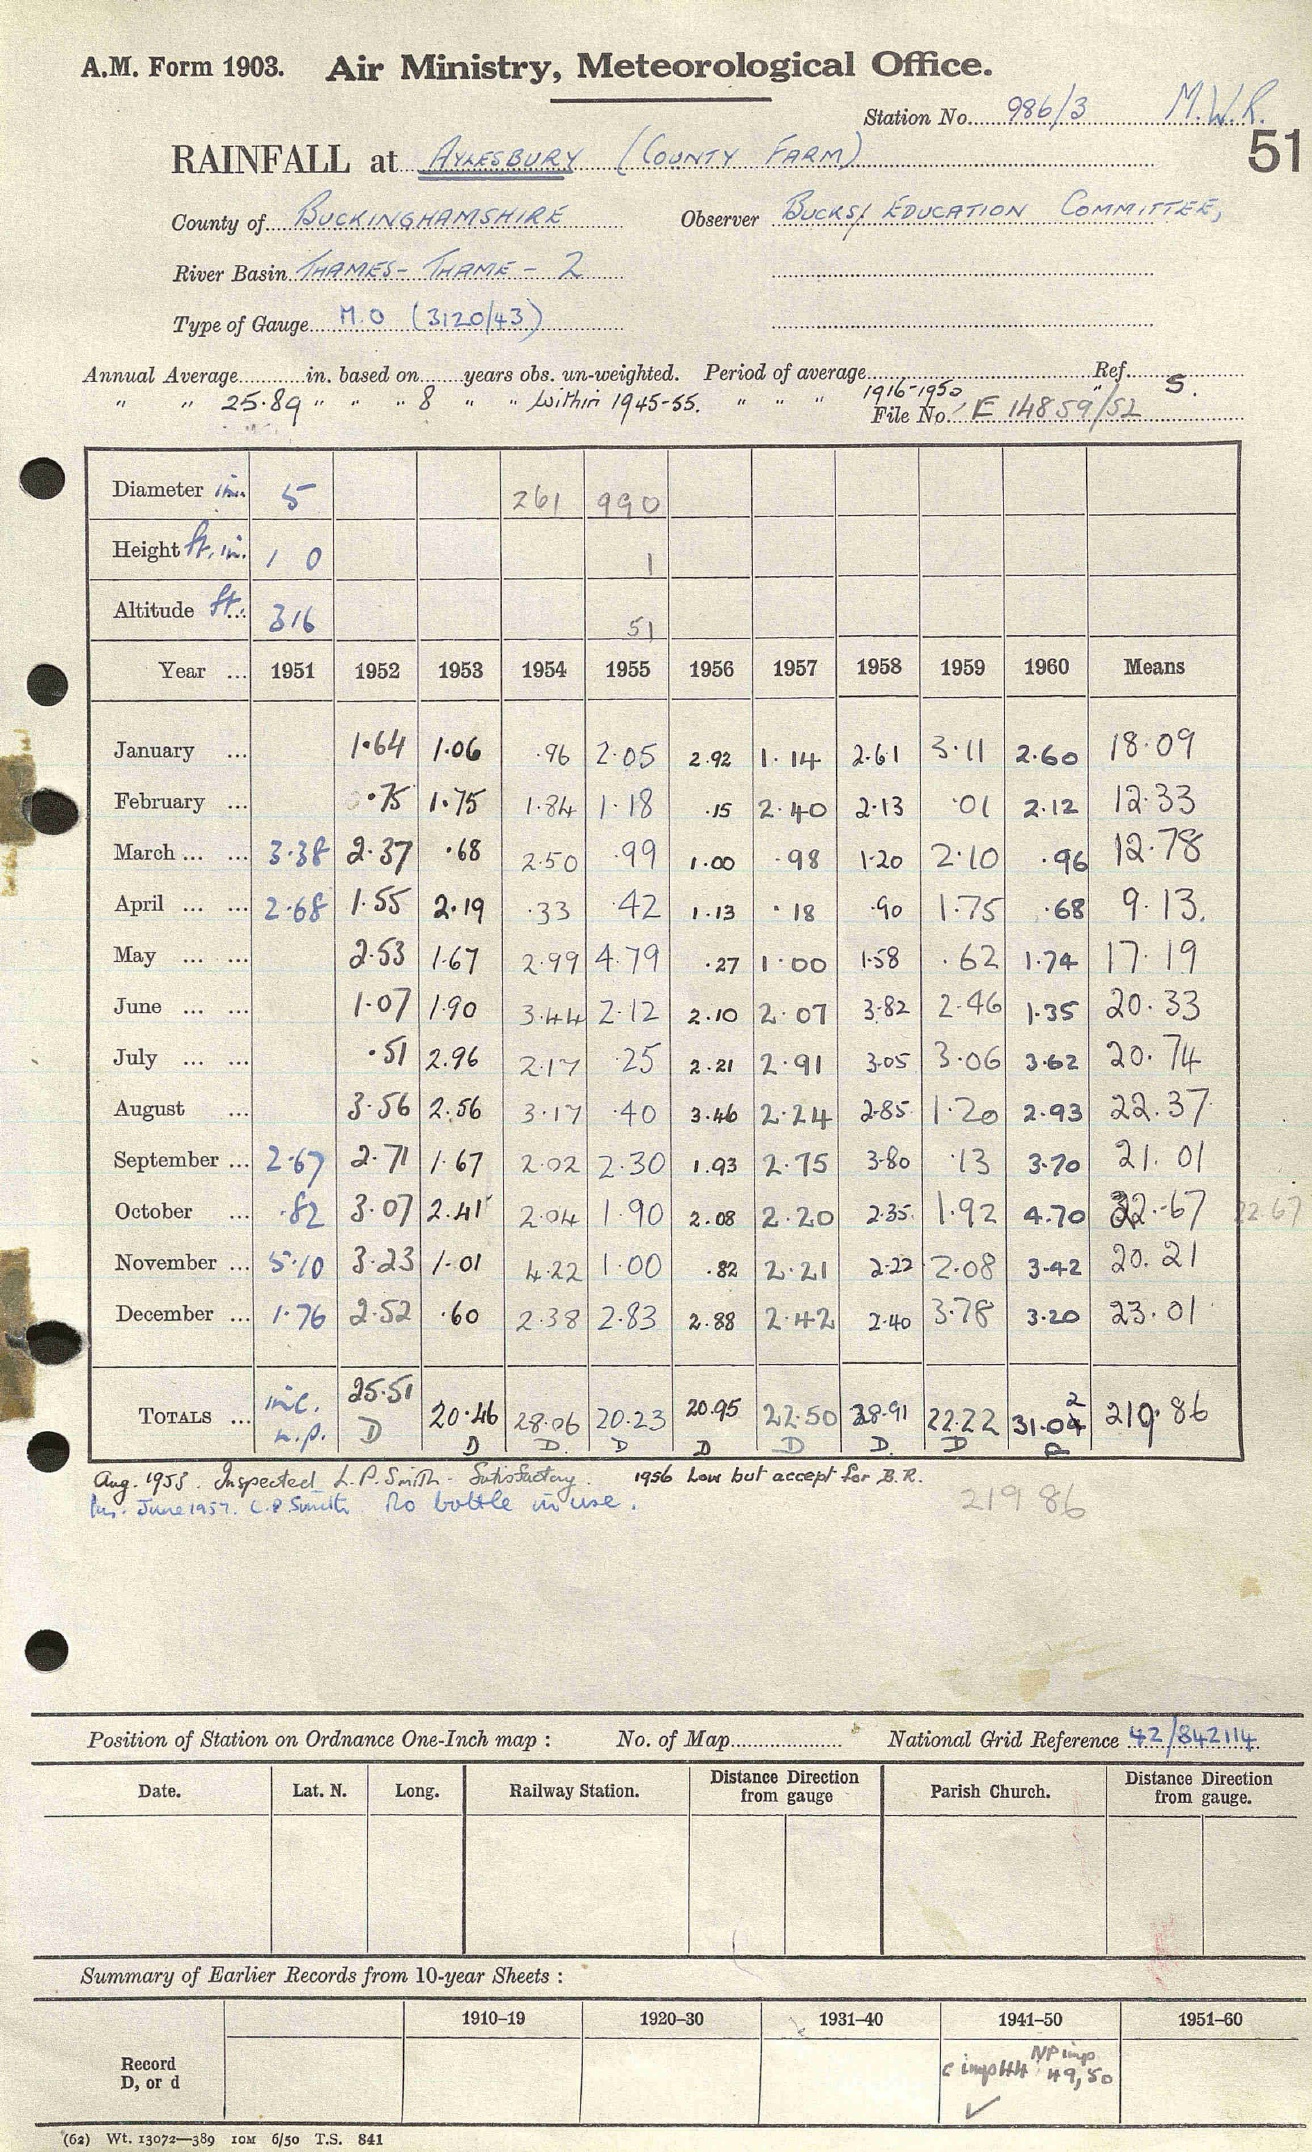 A.M. Form 1903. Air Ministry, Meteorological Office.
Station No. 986/3 M.W.R.
51
RAINFALL at AYLESBURY (COUNTY FARM)
County of BUCKINGHAMSHIRE Observer BUCKS/ EDUCATION COMMITTEE,
River Basin THAMES - THAME - 2
Type of Gauge M.O (3120/43)
Annual Average in. based on years obs. un-weighted. Period of average Ref.
" " 25.89 " " " 8 " " within 1945-55. " " " 1916-1950 " S.
File No. E 14859/52
Diameter in. 5 261 990
Height ft. in. 1 0 1
Altitude ft. ... 316 51
Year ... 1951 1952 1953 1954 1955 1956 1957 1958 1959 1960 Means
January ... 1.64 1.06 .96 2.05 2.92 1.14 2.61 3.11 2.60 18.09
February ... .75 1.75 1.84 1.18 .15 2.40 2.13 .01 2.12 12.33
March ... ... 3.38 2.37 .68 2.50 .99 1.00 .98 1.20 2.10 .96 12.78
April ... ... 2.68 1.55 2.19 .33 .42 1.13 .18 .90 1.75 .68 9.13.
May ... ... 2.53 1.67 2.99 4.79 .27 1.00 1.58 .62 1.74 17.19
June ... ... 1.07 1.90 3.44 2.12 2.10 2.07 3.82 2.46 1.35 20.33
July ... ... .51 2.96 2.17 .25 2.21 2.91 3.05 3.06 3.62 20.74
August ... 3.56 2.56 3.17 .40 3.46 2.24 2.85 1.20 2.93 22.37
September ... 2.67 2.71 1.67 2.02 2.30 1.93 2.75 3.80 .13 3.70 21.01
October ... .82 3.07 2.41 2.04 1.90 2.08 2.20 2.35 1.92 4.70 22.67 22.67
November ... 5.10 3.23 1.01 4.22 1.00 .82 2.21 2.22 2.08 3.42 20.21
December ... 1.76 2.52 .60 2.38 2.83 2.88 2.42 2.40 3.78 3.20 23.01
TOTALS ... inc. 25.51 20.46 28.06 20.23 20.95 22.50 28.91 22.22 31.02 219.86
n.p. D D D. D D D D. D D
Aug. 1953. Inspected L.P. Smith - Satisfactory. 1956 Low but accept for B.R.
Ins. June 1957. L.P. Smith No bottle in use.
219 86
Position of Station on Ordnance One-Inch map : No. of Map National Grid Reference 42/842114
Date. Lat. N. Long. Railway Station. Distance Direction from gauge Parish Church. Distance Direction from gauge.
Summary of Earlier Records from 10-year Sheets :
1910–19 1920–30 1931–40 1941–50 1951–60
Record
D, or d
NP imp
c imp 44 49,50
(62) Wt. 13072—389 10M 6/50 T.S. 841